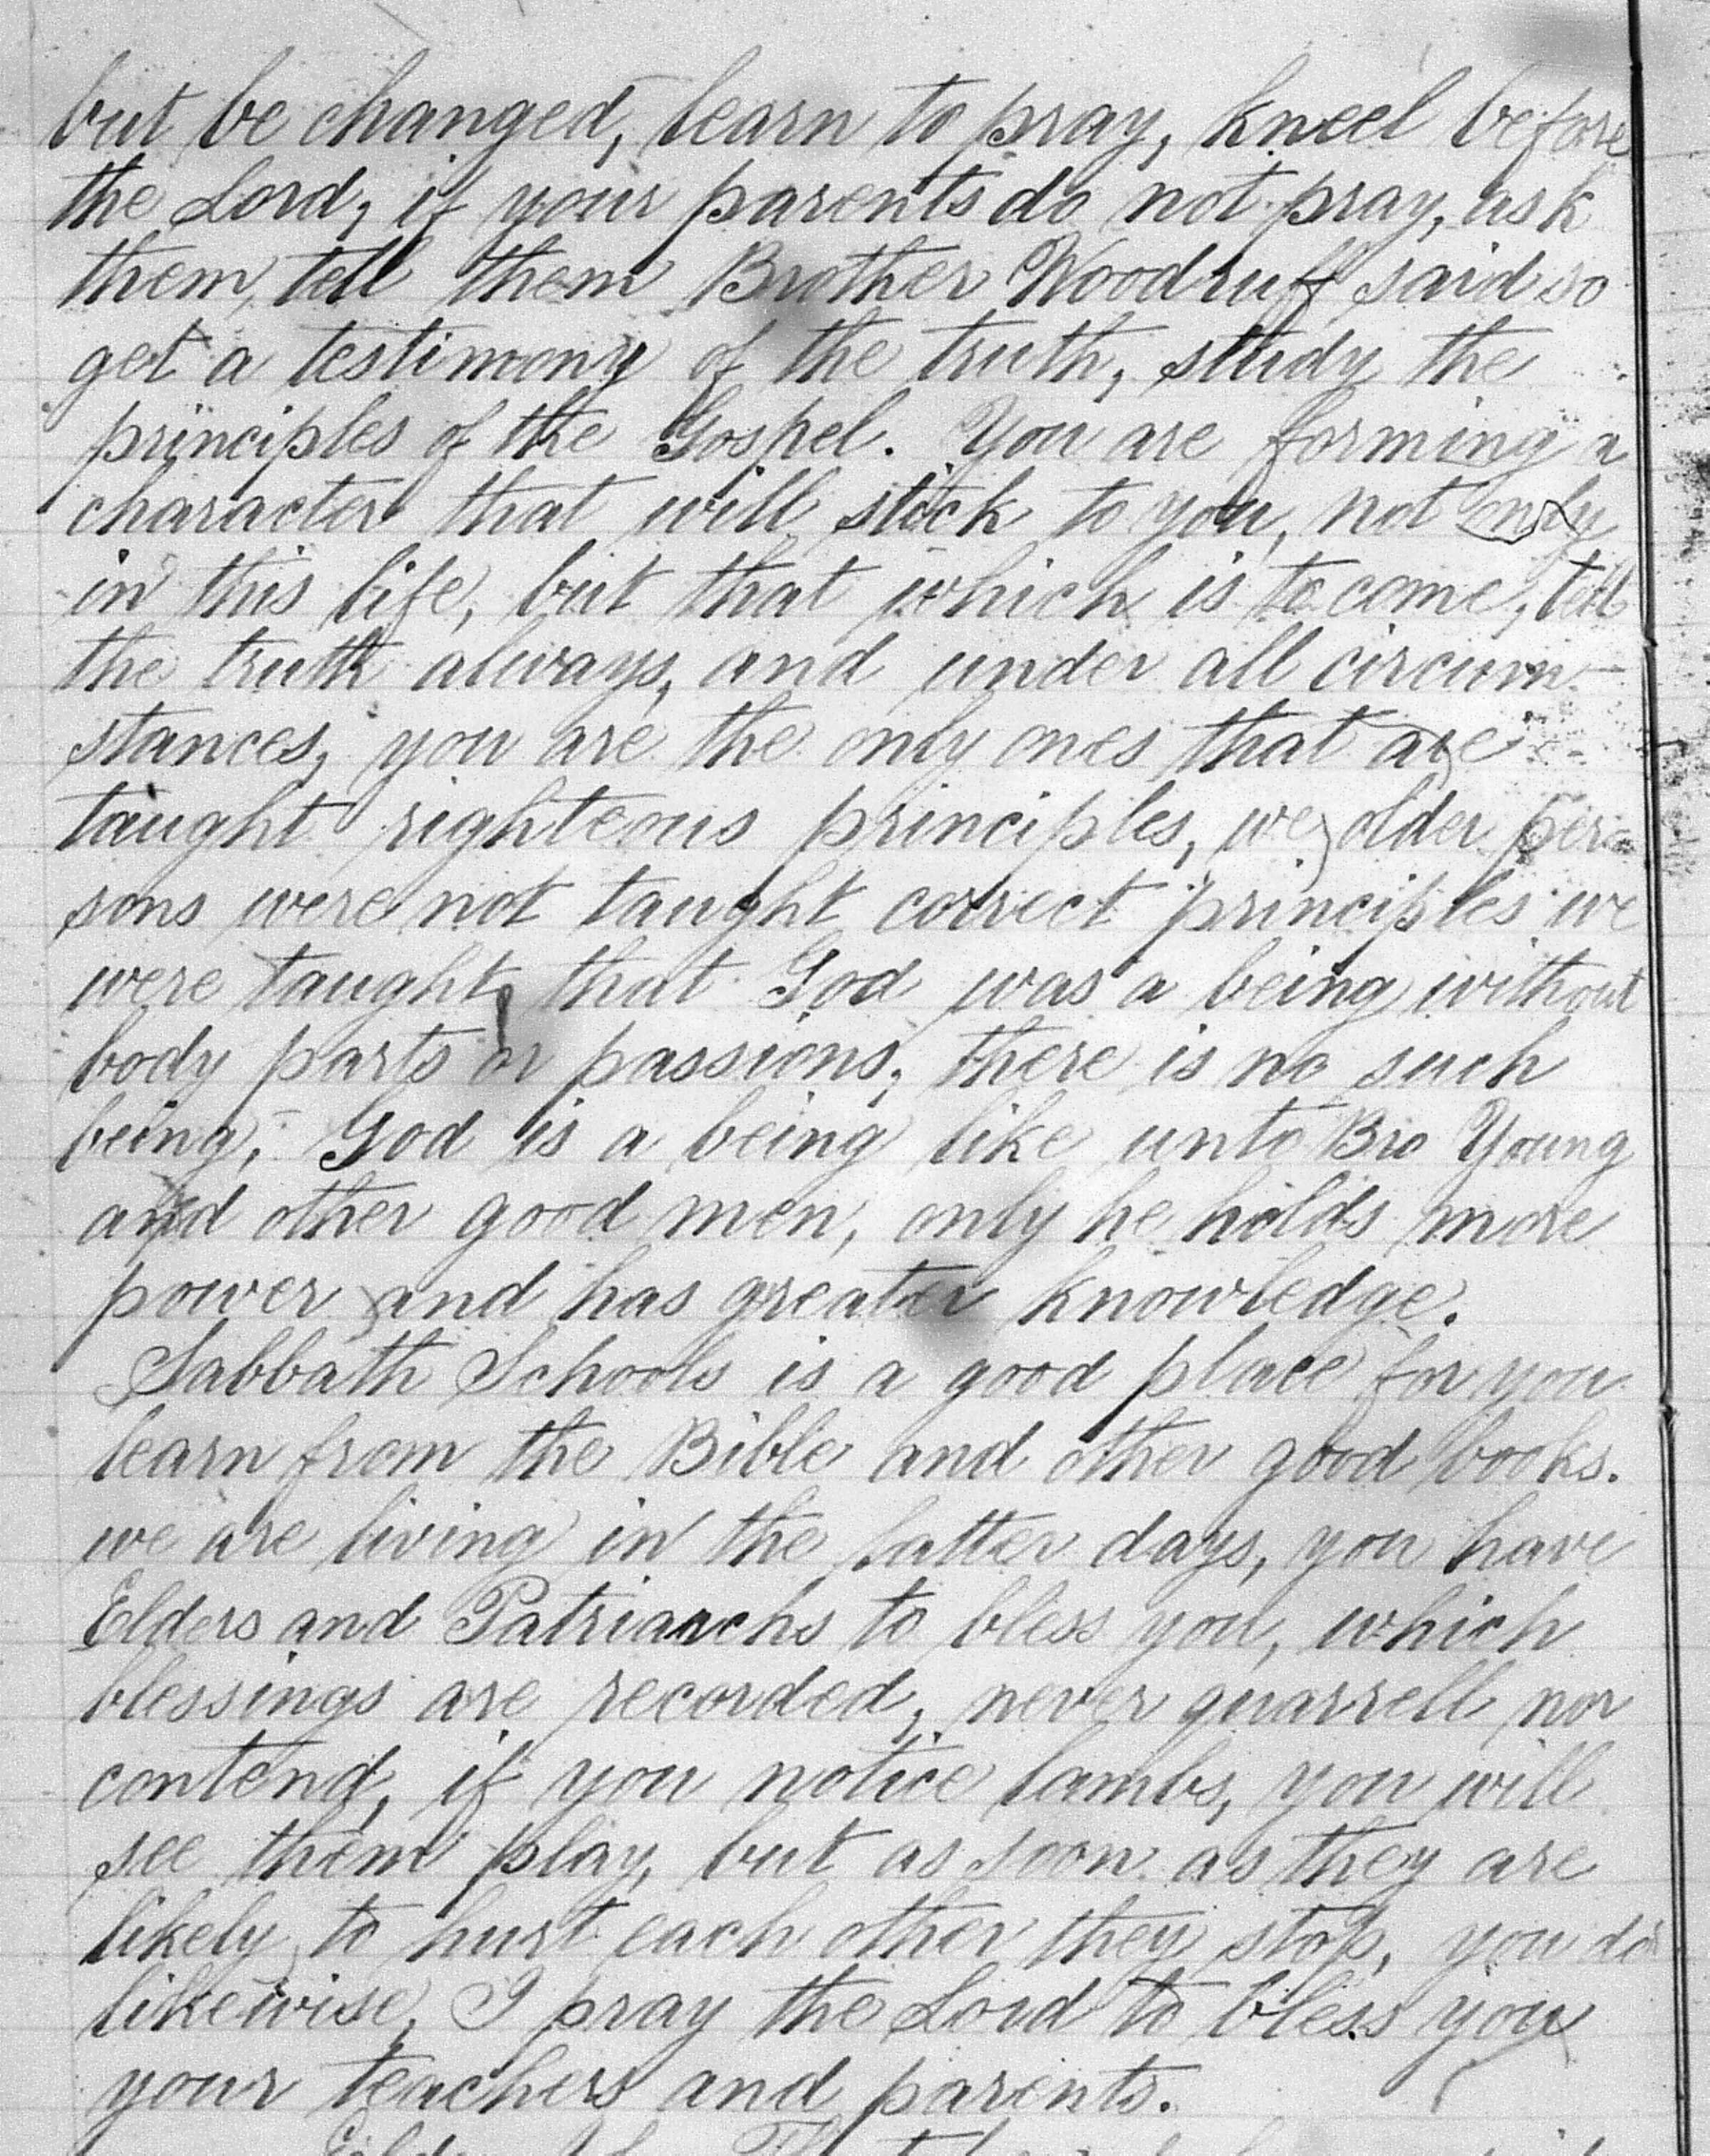 but be changed, learn to pray, kneel before
the Lord, if your parents do not pray, ask
them, tell them Brother Woodruff said so
get a testimony of the truth, study the
principles of the Gospel. You are forming a
character that will stick to you, not only
in this life, but that which is to come, tell
the truth always, and under all circum-
stances, you are the only ones that are
taught righteous principles, we older per-
sons were not taught correct principles we
were taught, that God was a being without
body parts or passions, there is no such
being, God is a being like unto Bro Young
and other good men, only he holds more
power and has greater knowledge.
Sabbath Schools is a good place for you
learn from the Bible and other good books.
we are living in the latter days, you have
Elders and Patriarchs to bless you, which
blessings are recorded, never quarrell nor
contend, if you notice lambs, you will
see them play, but as soon as they are
likely to hurt each other they stop, you do
likewise, I pray the Lord to bless you
your teachers and parents.